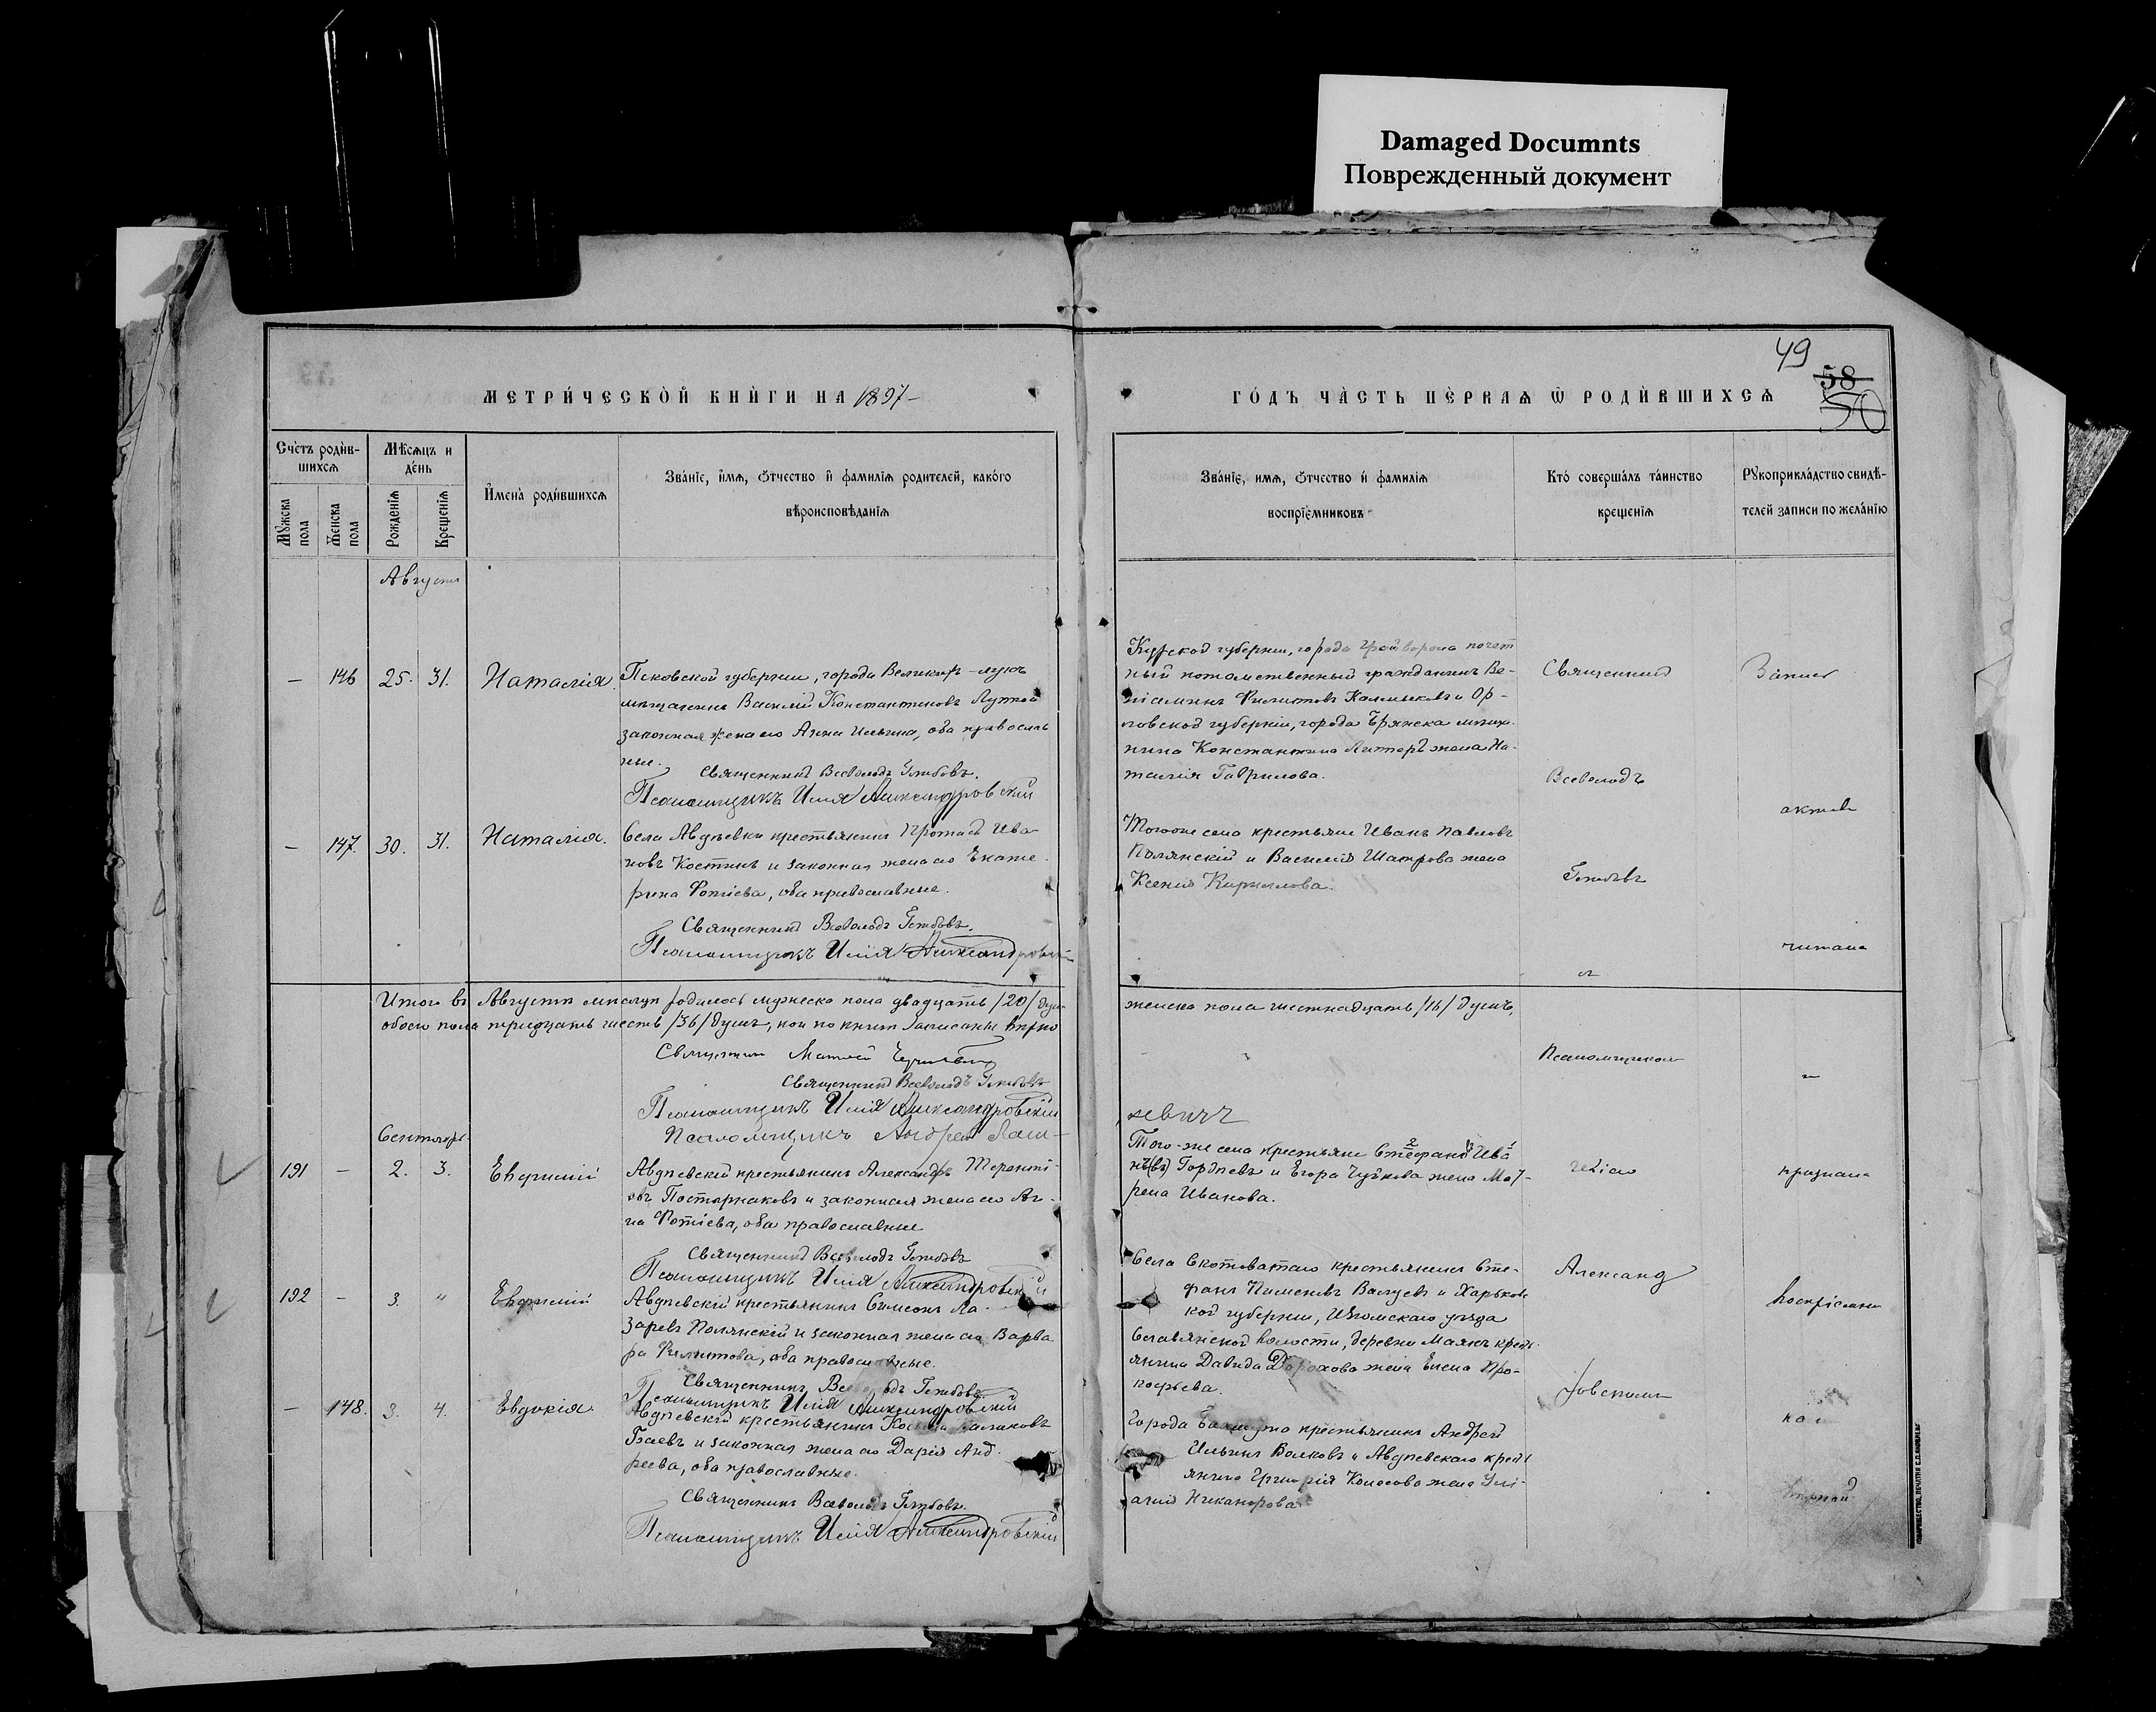 Damaged Documnts
Поврежденный документ
49
58
50
МЕТРИ́ЧЕСКОЙ КНИ́ГИ НА 1897
ГО́ДЪ ЧА́СТЬ ПЕ́РВАѦ Ѿ РОДИ́ВШИХСѦ
Счетъ роди́в-
шихсѧ
Мѣ́сѧцъ и
де́нь
Мꙋжска пола
Женска пола
Рожденїѧ
Крещенїѧ
И҆мена̀ роди́вшихсѧ
Зва́нїе, и҆́мѧ, ѻ҆́тчество и҆ фамилїѧ родителей, како́го
вѣроисповѣ́данїѧ
Зва́нїе, имѧ, ѻ҆́тчество и҆ фамилїѧ
воспрїе́мниковъ
Кто̀ соверша́лъ та́инство
крещенїѧ
Рꙋкоприкла́дство свидѣ́-
телей записи по жела́нїю
Августъ
— 146 25. 31. Наталія.
Псковской губерніи, города Великихъ-лукъ
мѣщанинъ Василій Константиновъ
законная жена его Анна Ильина, оба православ
ные.
Священникъ Всеволодъ Глѣбовъ.
Псаломщикъ Илія Александровскій
Курской губерніи, города Грайворона почет
ный потомственный гражданинъ Ве-
ніаминъ Филиповъ и Ор-
ловской губерніи, города Брянска мѣща-
нина Константина жена На-
талія Гаврилова.
Священникъ
Всеволодъ
Глѣбовъ
Запись
актовъ
читана
— 147. 30. 31. Наталія.
Села Авдѣевки крестьянинъ Протасъ Ива-
новъ Костинъ и законная жена его Екате-
рина Фотіева, оба православные.
Священникъ Всеволодъ Глѣбовъ.
Псаломщикъ Илія Александровскій
Тогоже села крестьяне Иванъ Павловъ
Полянскій и Василія Шатрова жена
Ксенія Кирилова.
съ
Итого въ Августѣ мѣсяцѣ родилось мужеска пола двадцать /20/ душ
женска пола шестнадцать /16/ душъ,
обоего пола тридцать шесть /36/ душъ, кои по книгѣ записаны вѣрно
Священникъ Матѳей
Священникъ Всеволодъ Глѣбовъ
Псаломщикъ Илія Александровскій
Псаломщикъ Андрей Лаш-
кевичъ
Псаломщикомъ
и
Сентябрь
191 — 2. 3. Евфимій
Авдѣевскій крестьянинъ Александръ Терентi-
евъ Постернаковъ и законная жена его Ан-
на Фотіева, оба православные
Священникъ Всеволодъ Глѣбовъ
Псаломщикъ Илія Александровскій
Того-же села крестьяне Стефанъ Ива
новъ Гордѣевъ и Егора Чуйкова жена Мат-
рена Иванова.
Иліею
признана
192 — 3. " Евфимій
Авдѣевскій крестьянинъ Симеонъ Ла-
заревъ Полянскій и законная жена его Варва
ра Филипова, оба православные.
Священникъ Всеволодъ Глѣбовъ
Псаломщикъ Илія Александровскій
Села Скотоватаго крестьянинъ Сте-
фанъ Пименовъ Валуевъ и Харьков
кой губерніи, Изюмскаго уѣзда
Славянской волости, деревни Маякъ кресть-
янина Давида Дорохова жена Елена Про-
кофьева.
Александ
ровскимъ
воспріемни
ка
— 148. 3. 4. Евдокія.
Авдѣевскій крестьянинъ
Гаевъ и законная жена его Дарія Анд-
реева, оба православные.
Священникъ Всеволодъ Глѣбовъ.
Псаломщикъ Илія Александровскій
Города Бахмута крестьянинъ Андрей
Ильинъ Волковъ и Авдѣевскаго крест
янина Григорія Колосова жена Улі-
анія Никанорова.